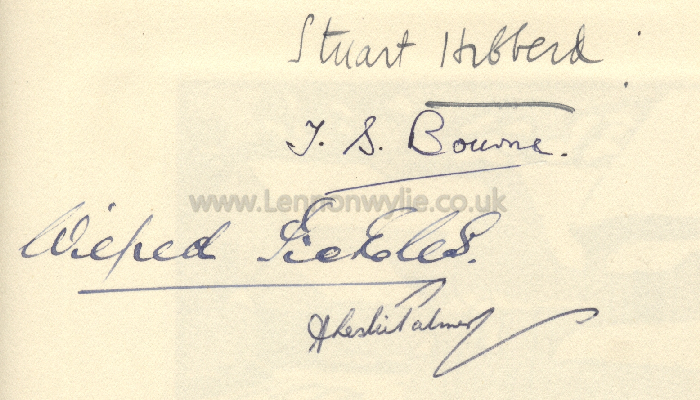 Stuart Hibberd
J. S. Bourne.
www.Lennonwylie.co.uk
Wilfred Pickles.
H Leslie Palmer